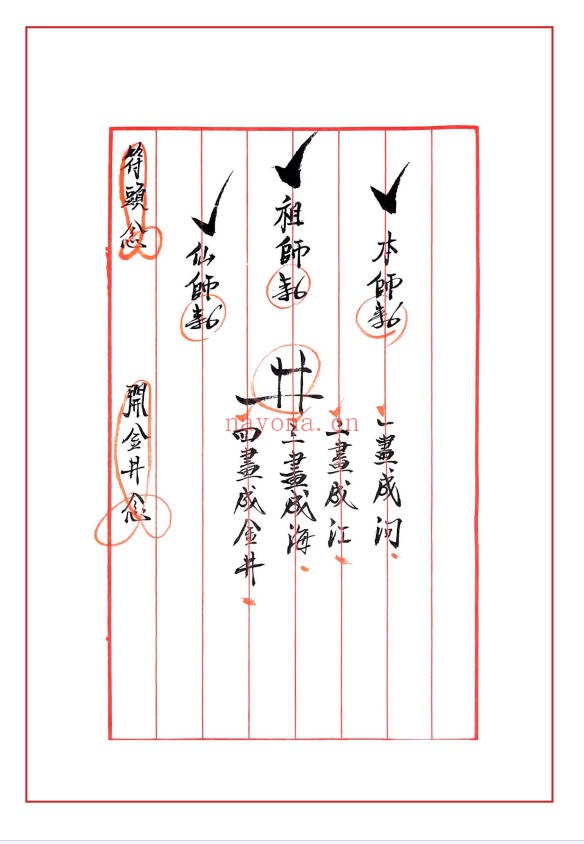 本師勅
祖師勅
仙師勅
符頭念
井
一畫成河
二畫成江
三畫成海
四畫成金井
開金井念
nayona.cn